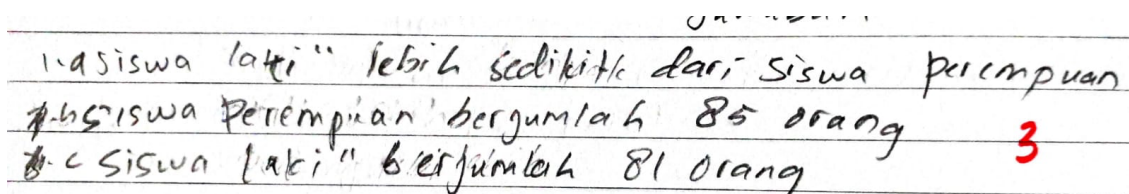 1.a siswa laki" lebih sedikitk dari siswa perempuan
b siswa perempuan bergumlah 85 orang
3
c siswa laki" berjumlah 81 orang